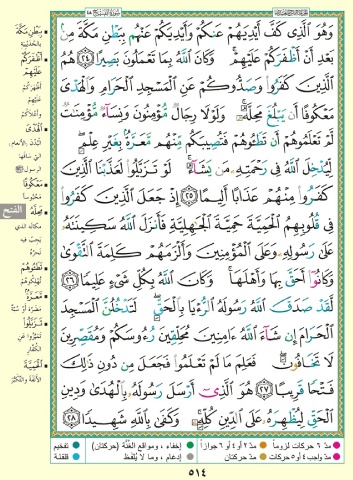 وَهُوَ ٱلَّذِى كَفَّ أَيْدِيَهُمْ عَنكُمْ وَأَيْدِيَكُمْ عَنْهُم بِبَطْنِ مَكَّةَ مِنۢ
بَعْدِ أَنْ أَظْفَرَكُمْ عَلَيْهِمْ ۚ وَكَانَ ٱللَّهُ بِمَا تَعْمَلُونَ بَصِيرًا ٢٤ هُمُ
ٱلَّذِينَ كَفَرُوا۟ وَصَدُّوكُمْ عَنِ ٱلْمَسْجِدِ ٱلْحَرَامِ وَٱلْهَدْىَ
مَعْكُوفًا أَن يَبْلُغَ مَحِلَّهُۥ ۚ وَلَوْلَا رِجَالٌ مُّؤْمِنُونَ وَنِسَآءٌ مُّؤْمِنَـٰتٌ
لَّمْ تَعْلَمُوهُمْ أَن تَطَـُٔوهُمْ فَتُصِيبَكُم مِّنْهُم مَّعَرَّةٌۢ بِغَيْرِ عِلْمٍ ۖ
لِّيُدْخِلَ ٱللَّهُ فِى رَحْمَتِهِۦ مَن يَشَآءُ ۚ لَوْ تَزَيَّلُوا۟ لَعَذَّبْنَا ٱلَّذِينَ
كَفَرُوا۟ مِنْهُمْ عَذَابًا أَلِيمًا ٢٥ إِذْ جَعَلَ ٱلَّذِينَ كَفَرُوا۟
فِى قُلُوبِهِمُ ٱلْحَمِيَّةَ حَمِيَّةَ ٱلْجَـٰهِلِيَّةِ فَأَنزَلَ ٱللَّهُ سَكِينَتَهُۥ
عَلَىٰ رَسُولِهِۦ وَعَلَى ٱلْمُؤْمِنِينَ وَأَلْزَمَهُمْ كَلِمَةَ ٱلتَّقْوَىٰ
وَكَانُوٓا۟ أَحَقَّ بِهَا وَأَهْلَهَا ۚ وَكَانَ ٱللَّهُ بِكُلِّ شَىْءٍ عَلِيمًا ٢٦
لَّقَدْ صَدَقَ ٱللَّهُ رَسُولَهُ ٱلرُّءْيَا بِٱلْحَقِّ ۖ لَتَدْخُلُنَّ ٱلْمَسْجِدَ
ٱلْحَرَامَ إِن شَآءَ ٱللَّهُ ءَامِنِينَ مُحَلِّقِينَ رُءُوسَكُمْ وَمُقَصِّرِينَ
لَا تَخَافُونَ ۖ فَعَلِمَ مَا لَمْ تَعْلَمُوا۟ فَجَعَلَ مِن دُونِ ذَٰلِكَ
فَتْحًا قَرِيبًا ٢٧ هُوَ ٱلَّذِىٓ أَرْسَلَ رَسُولَهُۥ بِٱلْهُدَىٰ وَدِينِ
ٱلْحَقِّ لِيُظْهِرَهُۥ عَلَى ٱلدِّينِ كُلِّهِۦ ۚ وَكَفَىٰ بِٱللَّهِ شَهِيدًا ٢٨
بِبَطْنِ مَكَّةَ
بالحديبية
أَظْفَرَكُمْ
عَلَيْهِمْ
أظهركم
عليهم
وأعلاكم
ٱلْهَدْىَ
مَعْكُوفًا
محبوساً
مَحِلَّهُۥ
الفتح
تَطَـُٔوهُمْ
مَّعَرَّةٌ
تَزَيَّلُوا۟
تميّزوا عن
الكفار
ٱلْحَمِيَّةَ
الأنفة والتكبّر
مدّ ٦ حركات لزوماً
مدّ ٢ أو ٤ أو ٦ جوازاً
إخفاء، ومواقع الغُنَّة (حركتان)
تفخيم
مدّ واجب ٤ أو ٥ حركات
مدّ حركتان
إدغام، وما لا يُلفَظ
قلقلة
٥١٤